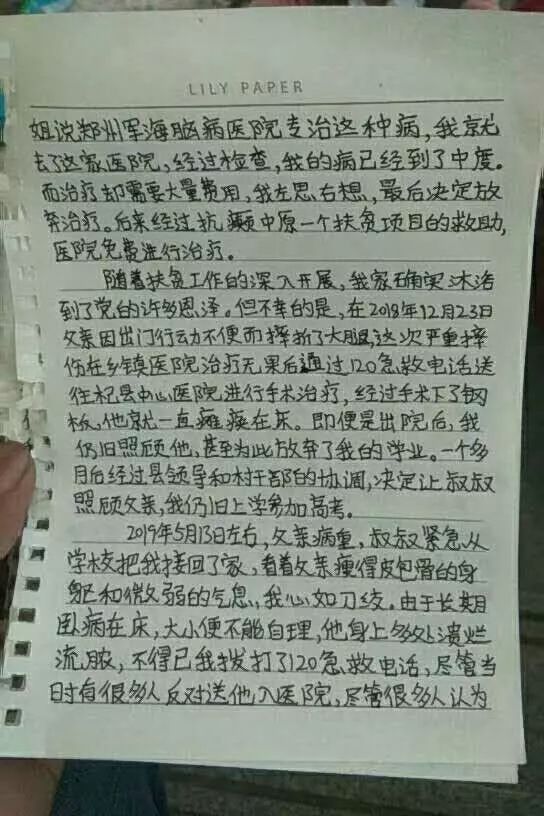 LILY PAPER
姐说郑州军海脑病医院专治这种病,我就
去了这家医院,经过检查,我的病已经到了中度。
而治疗却需要大量费用,我左思右想,最后决定放
弃治疗。后来经过抗癫中原一个扶贫项目的救助,
医院免费进行治疗。
随着扶贫工作的深入开展,我家确实沐浴
到了党的许多恩泽。但不幸的是,在2018年12月23日
父亲因出门行动不便而摔折了大腿,这次严重摔
伤在乡镇医院治疗无果后通过120急救电话送
往杞县中心医院进行手术治疗,经过手术下了钢
板,他就一直瘫痪在床。即便是出院后,我
仍旧照顾他,甚至为此放弃了我的学业。一个多
月后经过县领导和村干部的协调,决定让叔叔
照顾父亲,我仍旧上学参加高考。
2019年5月13日左右,父亲病重,叔叔紧急从
学校把我接回了家,看着父亲瘦得皮包骨的身
躯和微弱的气息,我心如刀绞。由于长期
卧病在床,大小便不能自理,他身上多处溃烂
流脓,不得已我拨打了120急救电话,尽管当
时有很多人反对送他入医院,尽管很多人认为